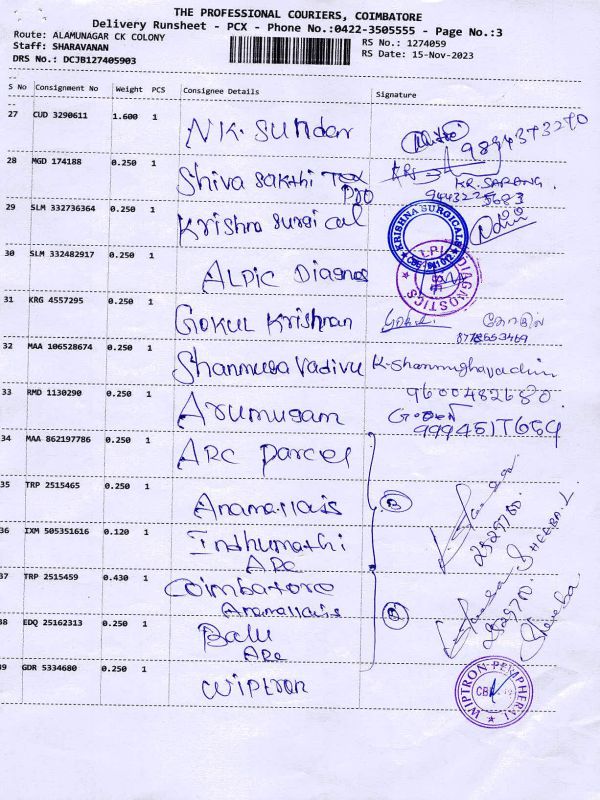 THE PROFESSIONAL COURIERS, COIMBATORE
Delivery Runsheet - PCX - Phone No.:0422-3505555 - Page No.:3
Route: ALAMUNAGAR CK COLONY
RS No.: 1274059
Staff: SHARAVANAN
RS Date: 15-Nov-2023
DRS No.: DCJB127405903
S No Consignment No Weight PCS Consignee Details Signature
27 CUD 3290611 1.600 1 N.K. Sundar
9894373270
28 MGD 174188 0.250 1 Shiva Sakthi Tex Pro
KR. SARANG.
29 SLM 332736364 0.250 1 Krishna Surgical
KRISHNA SURGICALS
30 SLM 332482917 0.250 1 ALPIC Diagnos
DIAGNOSTICS
31 KRG 4557295 0.250 1 Gokul Krishnan
Gokul
8778653469
32 MAA 106528674 0.250 1 Shanmuga Vadivu K-Shanmughavadivu
9600482680
33 RMD 1130290 0.250 1 Arumugam
34 MAA 862197786 0.250 1 ARC Parcel
35 TRP 2515465 0.250 1 Anamallais
36 IXM 505351616 0.120 1 Indhumathi
ARC
SHEEBA. L
2529760.
37 TRP 2515459 0.430 1 Coimbatore
Anamallais
38 EDQ 25162313 0.250 1 Balu
ARC
Sheeba
39 GDR 5334680 0.250 1 Wiptron
WIPTRON PERAPHERAL